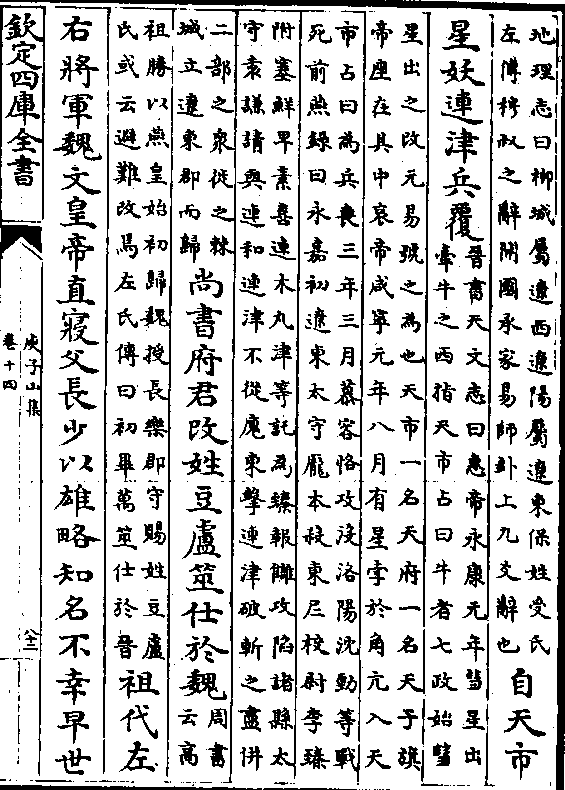 地理志曰柳城屬遼西遼陽屬遼東保姓受氏
左傳穆叔之辭開國承家易師卦上九爻辭也
自天市
星妖連津兵覆
晉書天文志曰惠帝永康元年彗星出
牽牛之西指天市占曰牛者七政始彗
星出之改元易號之為也天市一名天府一名天子旗
帝座在其中哀帝咸寧元年八月有星孛於角亢入天
市占曰為兵喪三年三月慕容恪攻沒洛陽沈勁等戰
死前燕錄曰永嘉初遼東太守龎本殺東尼校尉李臻
附塞鮮卑素喜連木丸津等託為臻報讎攻陷諸縣太
守袁謙請與連和連津不從廆東擊連津破斬之盡併
二部之衆從之棘
城立遼東郡而歸
尚書府君改姓豆盧筮仕於魏
周書
云高
祖勝以燕皇始初歸魏授長樂郡守賜姓豆盧
氏或云避難改焉左氏傳曰初畢萬筮仕於晉
祖代左
右將軍魏文皇帝直寢父長少以雄略知名不幸早世
欽定四庫全書
庾子山集
卷十四